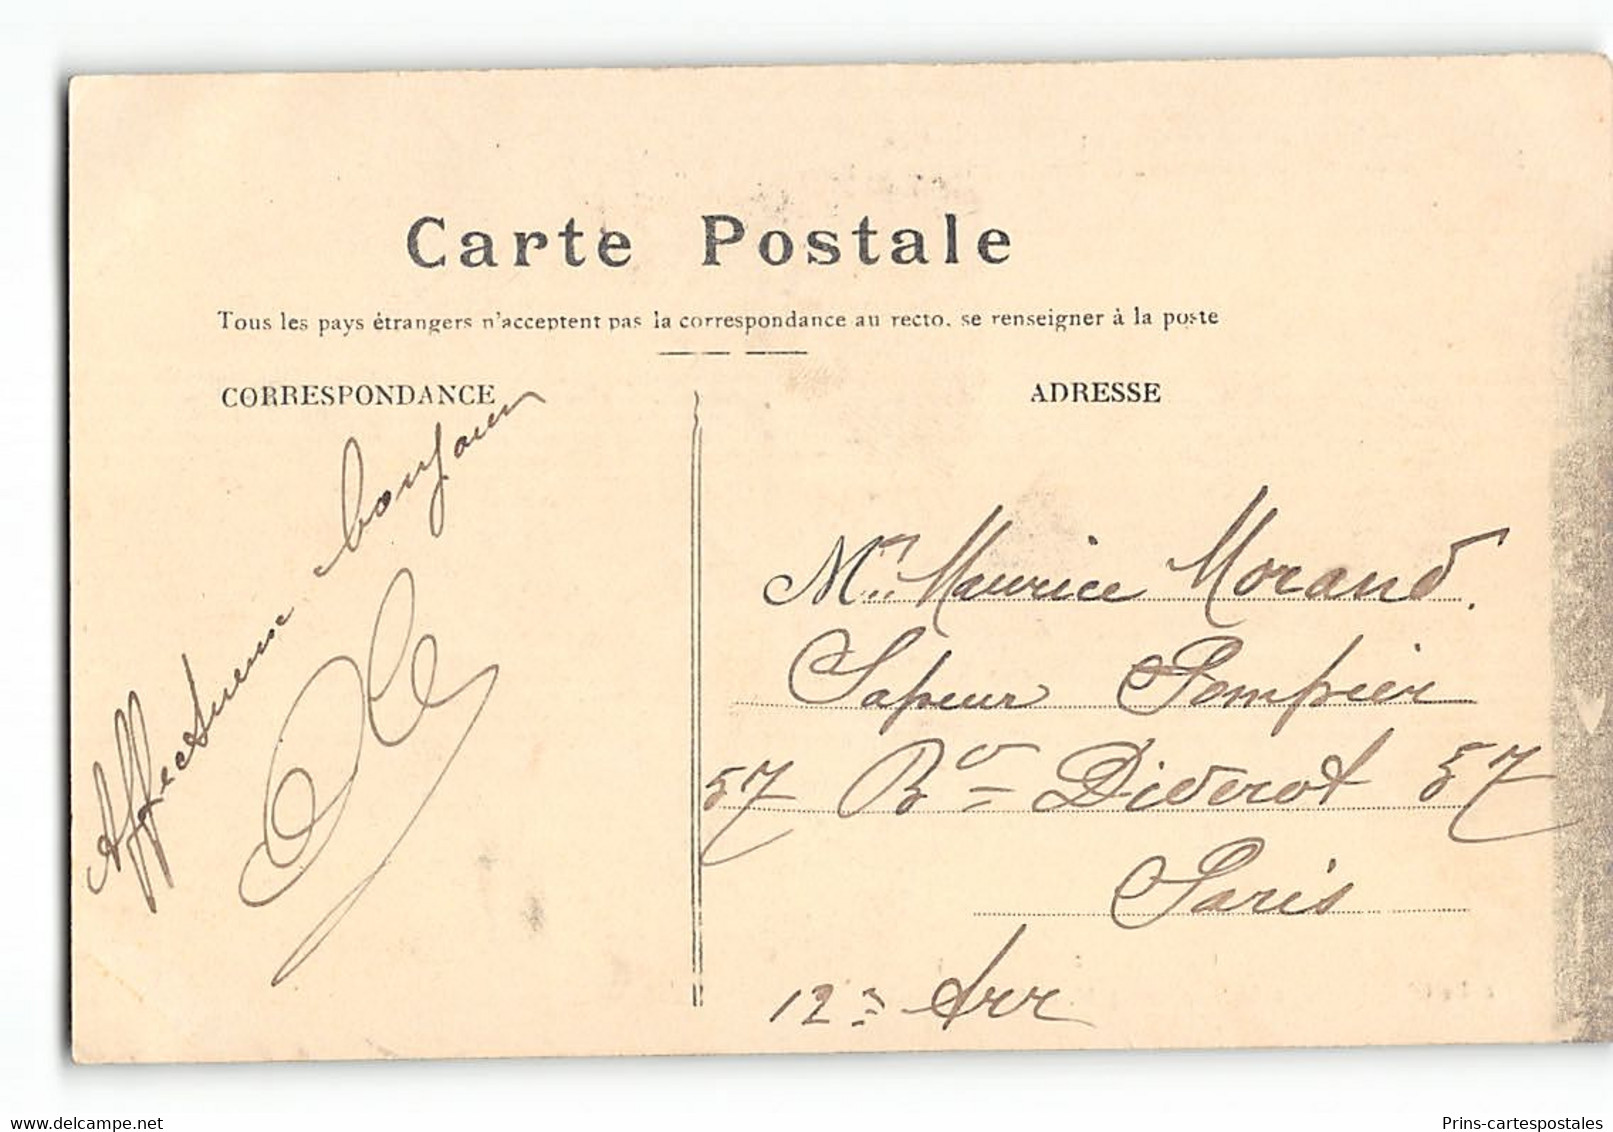 Carte Postale
Tous les pays étrangers n'acceptent pas la correspondance au recto. se renseigner à la poste
CORRESPONDANCE
ADRESSE
Affectueux bonjour
Mr. Maurice Morand.
Sapeur Pompier
57 Bd Diderot 57
Paris
12e Arr
delcampe.net
Prins-cartespostales